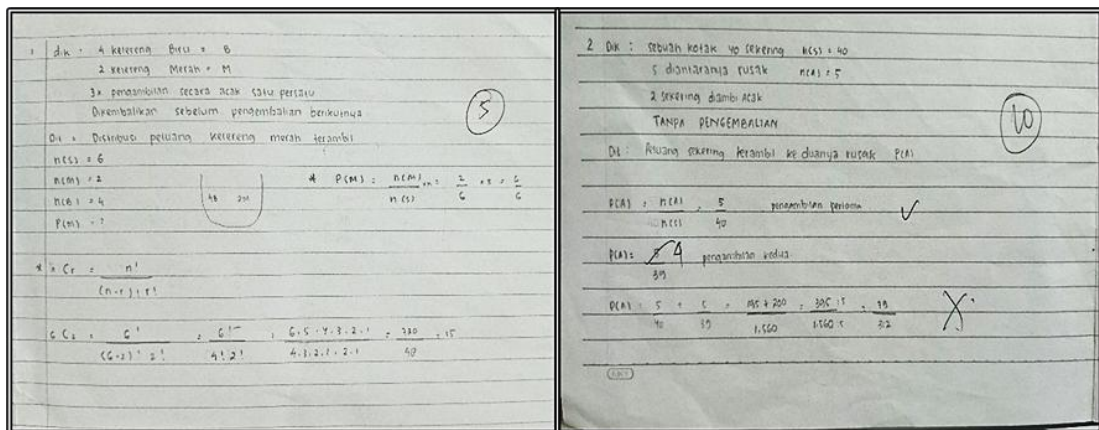 1 dik : 4 kelereng Biru = B
2 kelereng Merah = M
3x pengambilan secara acak satu persatu
Dikembalikan sebelum pengembalian berikutnya
5
Dit : Distribusi peluang kelereng merah terambil
n(s) = 6
n(m) = 2
n(B) = 4
P(m) = ?
4B 2M
* P(M) = n(M) / n(s) × n = 2/6 × 3 = 6/6
* n C r = n! / (n-r)! r!
6 C 2 = 6! / (6-2)! 2! = 6! / 4! 2! = 6.5.4.3.2.1 / 4.3.2.1.2.1 = 15
2 Dik : sebuah kotak 40 sekering n(s) = 40
5 diantaranya rusak n(A) = 5
2 sekering diambi Acak
TANPA PENGEMBALIAN
10
Dit : Peluang sekering terambil keduanya rusak P(A)
P(A) = n(A) / n(s) = 5 / 40 pengambilan pertama ✓
P(A) = 4 / 39 pengambilan kedua
P(A) = 5/40 + 5/39 = 195 + 200 / 1.560 = 395 : 5 / 1.560 : 5 =